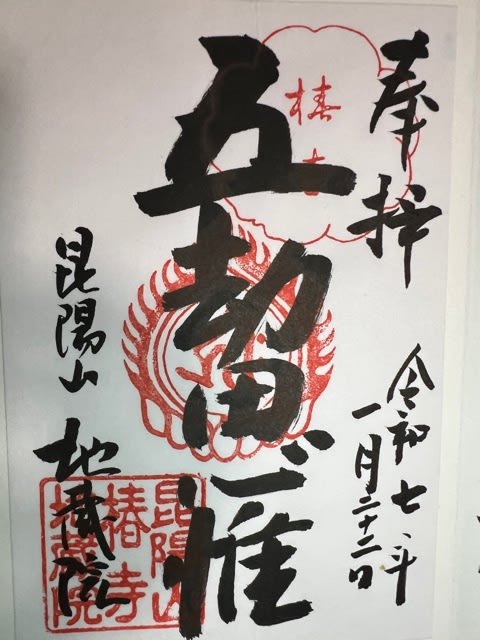 奉拝
椿寺
令和七年
一月二十二日
五劫思惟
昆陽山
地蔵院
昆陽山
椿寺
地蔵院